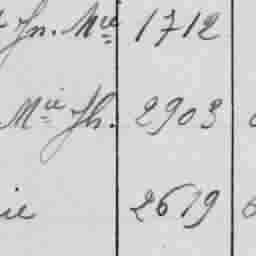 Jn. Mie 1712
Mie Jh. 2903
ie 2619